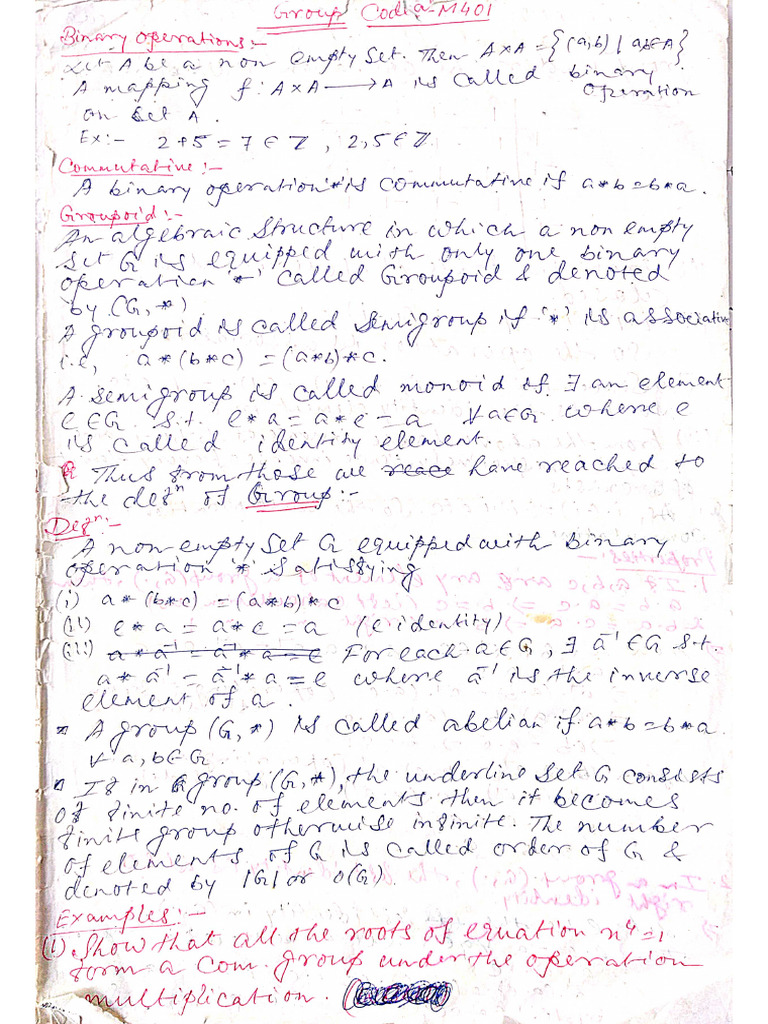 Group Code-M401
Binary operations:-
Let A be a non empty set. Then A×A = {(a,b) | a,b∈A}
A mapping f: A×A ⟶ A is called binary operation
on set A.
Ex:- 2+5 = 7 ∈ ℤ, 2,5 ∈ ℤ
Commutative:-
A binary operation '*' is commutative if a*b=b*a.
Groupoid:-
An algebraic structure in which a non empty
set G is equipped with only one binary
operation '*' called Groupoid & denoted
by (G,*)
A groupoid is called semigroup if '*' is associative
i.e, a*(b*c) = (a*b)*c.
A semigroup is called monoid if ∃ an element
e∈G s.t. e*a = a*e = a ∀a∈G where e
is called identity element.
Thus from those we have reached to
the defⁿ of Group:-
Defⁿ:-
A non empty set G equipped with binary
operation '*' satisfying
(i) a*(b*c) = (a*b)*c
(ii) e*a = a*e = a (e identity)
(iii) a*a⁻¹ = a⁻¹*a = e For each a∈G, ∃ a⁻¹∈G s.t.
a*a⁻¹ = a⁻¹*a = e where a⁻¹ is the inverse
element of a.
* A group (G,*) is called abelian if a*b=b*a
∀ a,b∈G.
* If in a group (G,*), the underline set G consists
of finite no. of elements then it becomes
finite group otherwise infinite. The number
of elements of G is called order of G &
denoted by |G| or o(G).
Examples:-
(1). Show that all the roots of equation x⁴=1
form a com. group under the operation
multiplication.